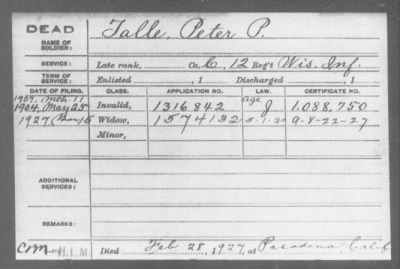 DEAD
NAME OF SOLDIER:
Talle, Peter P.
SERVICE:
Late rank, Co. C, 12 Reg't Wis. Inf.
TERM OF SERVICE:
Enlisted , 1 Discharged , 1
DATE OF FILING. CLASS. APPLICATION NO. LAW. CERTIFICATE NO.
1907, Mch. 11 Age
1904, May 25 Invalid, 1316842 J 1,088,750
1927, 15 Widow, 1574132 5-1-20 9-8-22-27
Minor,
ADDITIONAL SERVICES:
REMARKS:
H.L.M Died Feb 28, 1927, at Pasadena, Calif